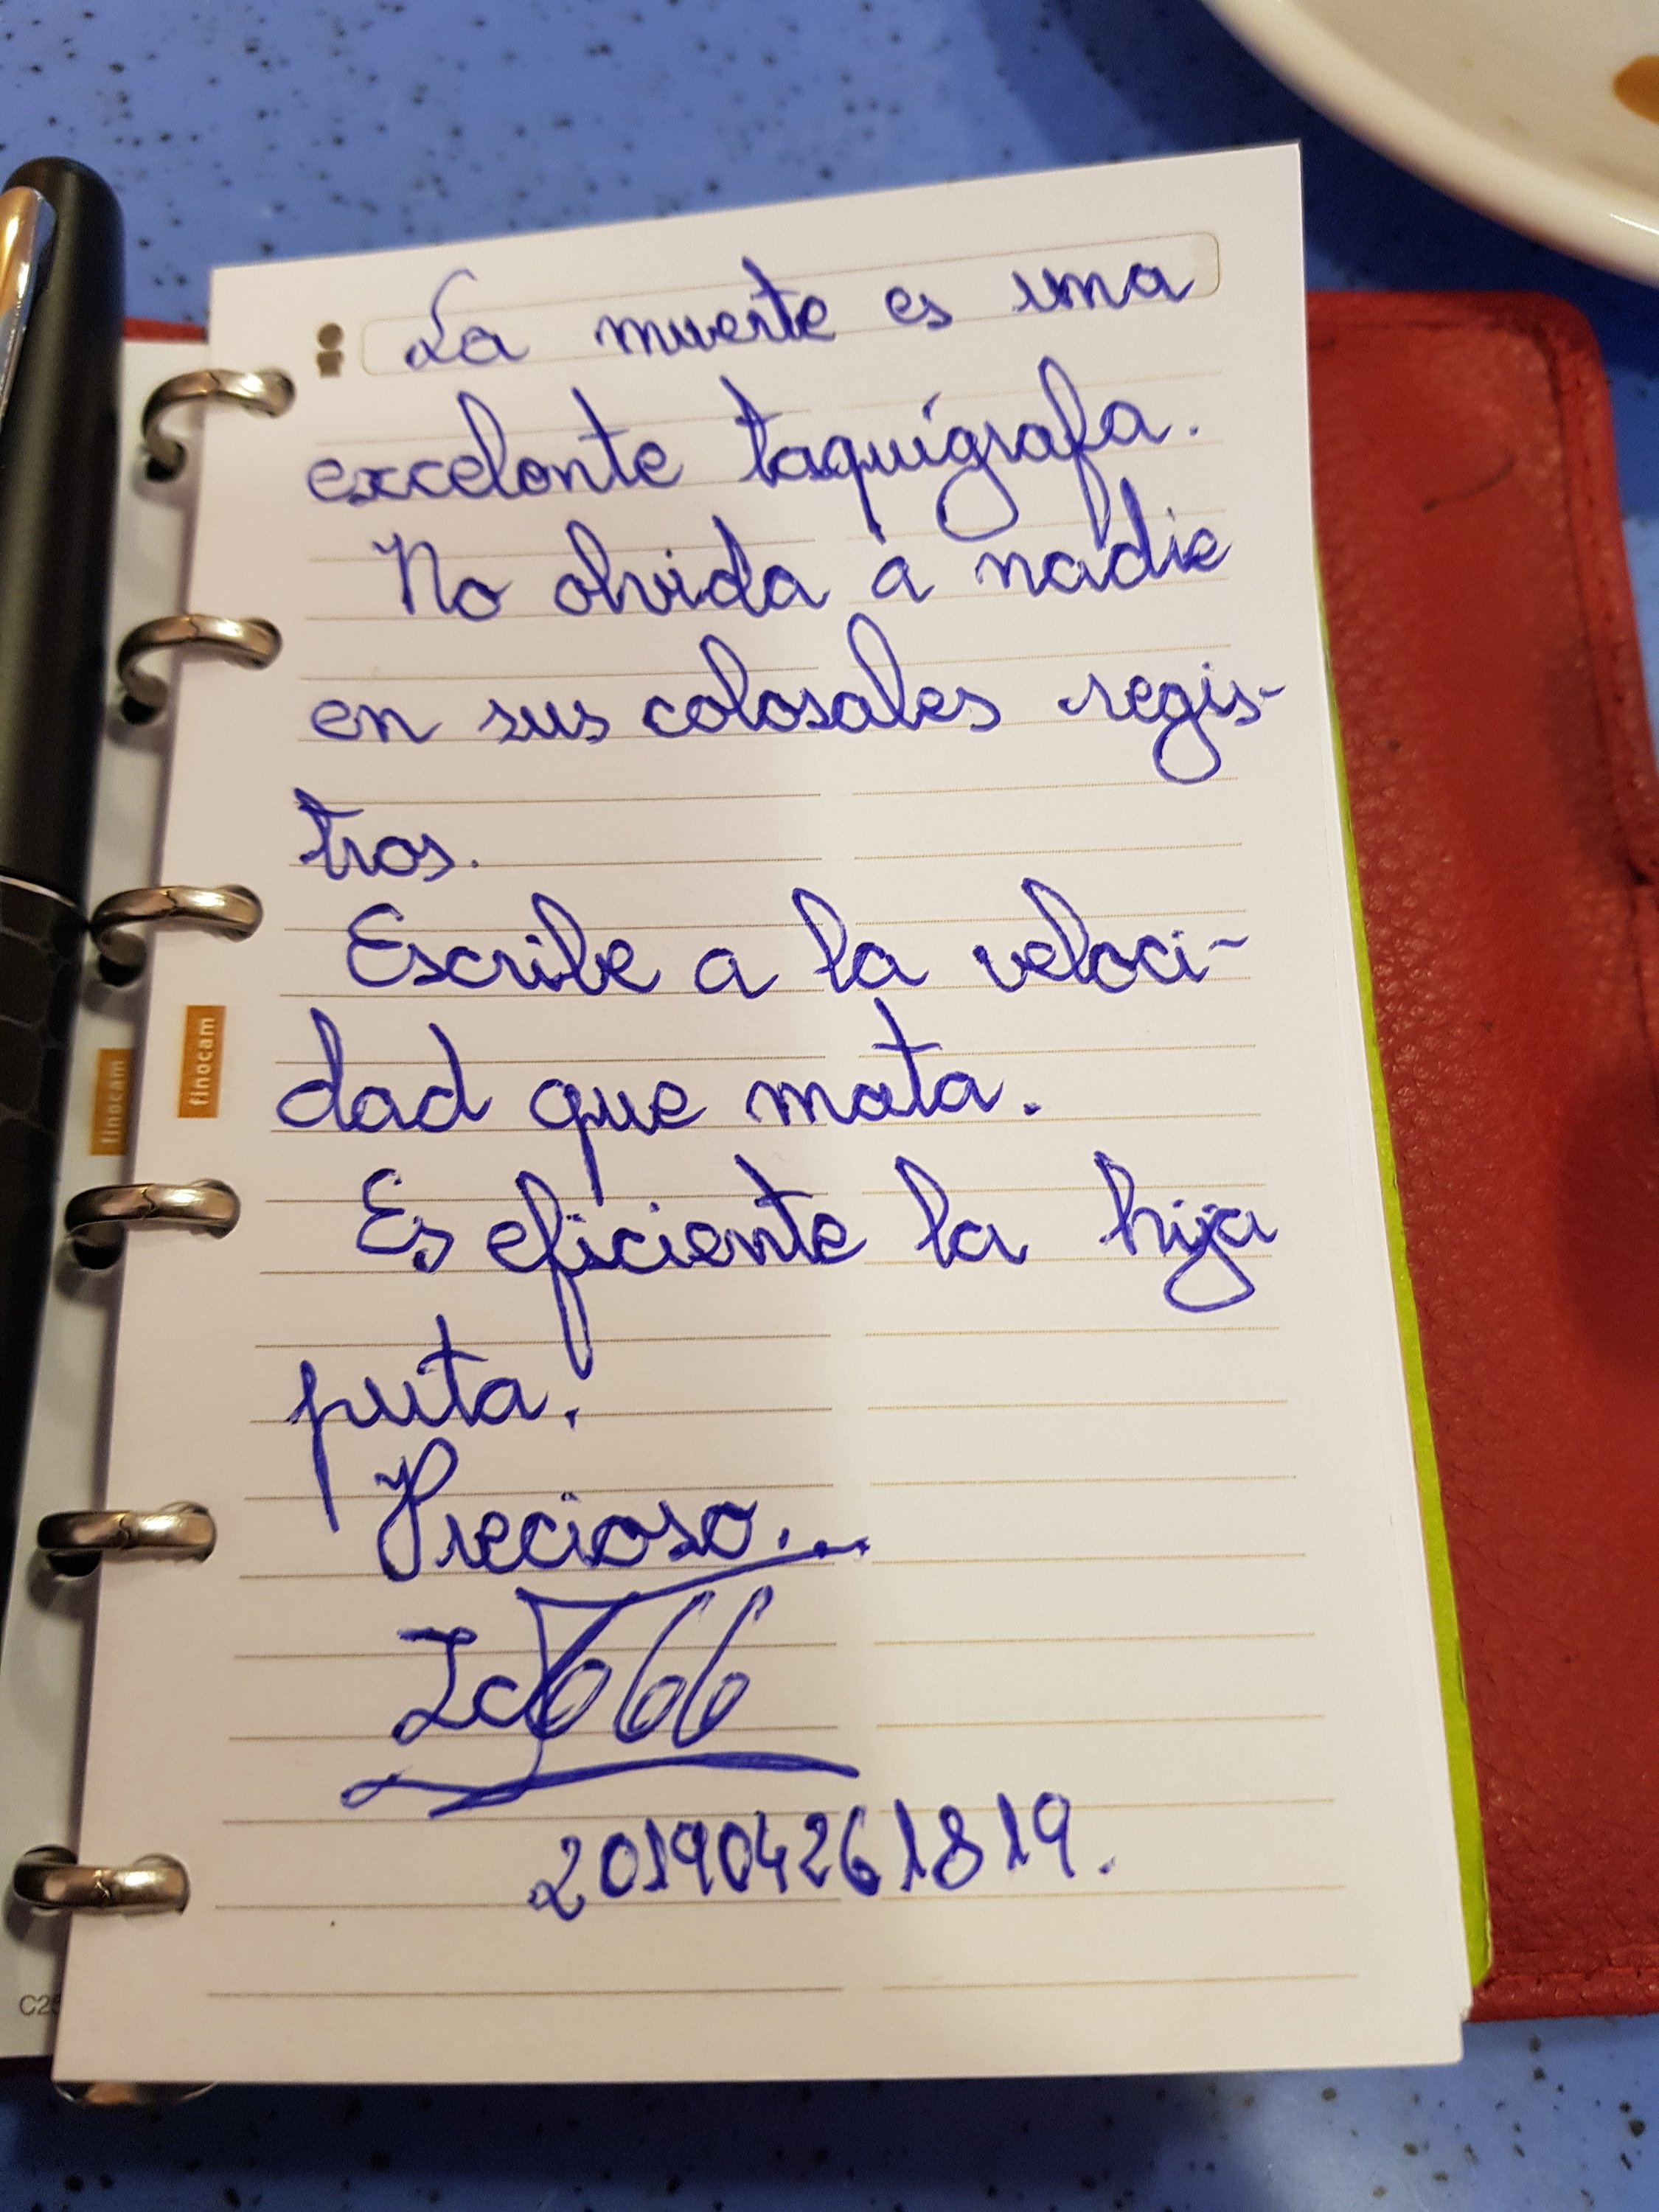 La muerte es una
excelente taquígrafa.
No olvida a nadie
en sus colosales regis-
tros.
Escribe a la veloci-
dad que mata.
Es eficiente la hija
puta.
Precioso...
666
201904261819.
finocam
finocam
C25